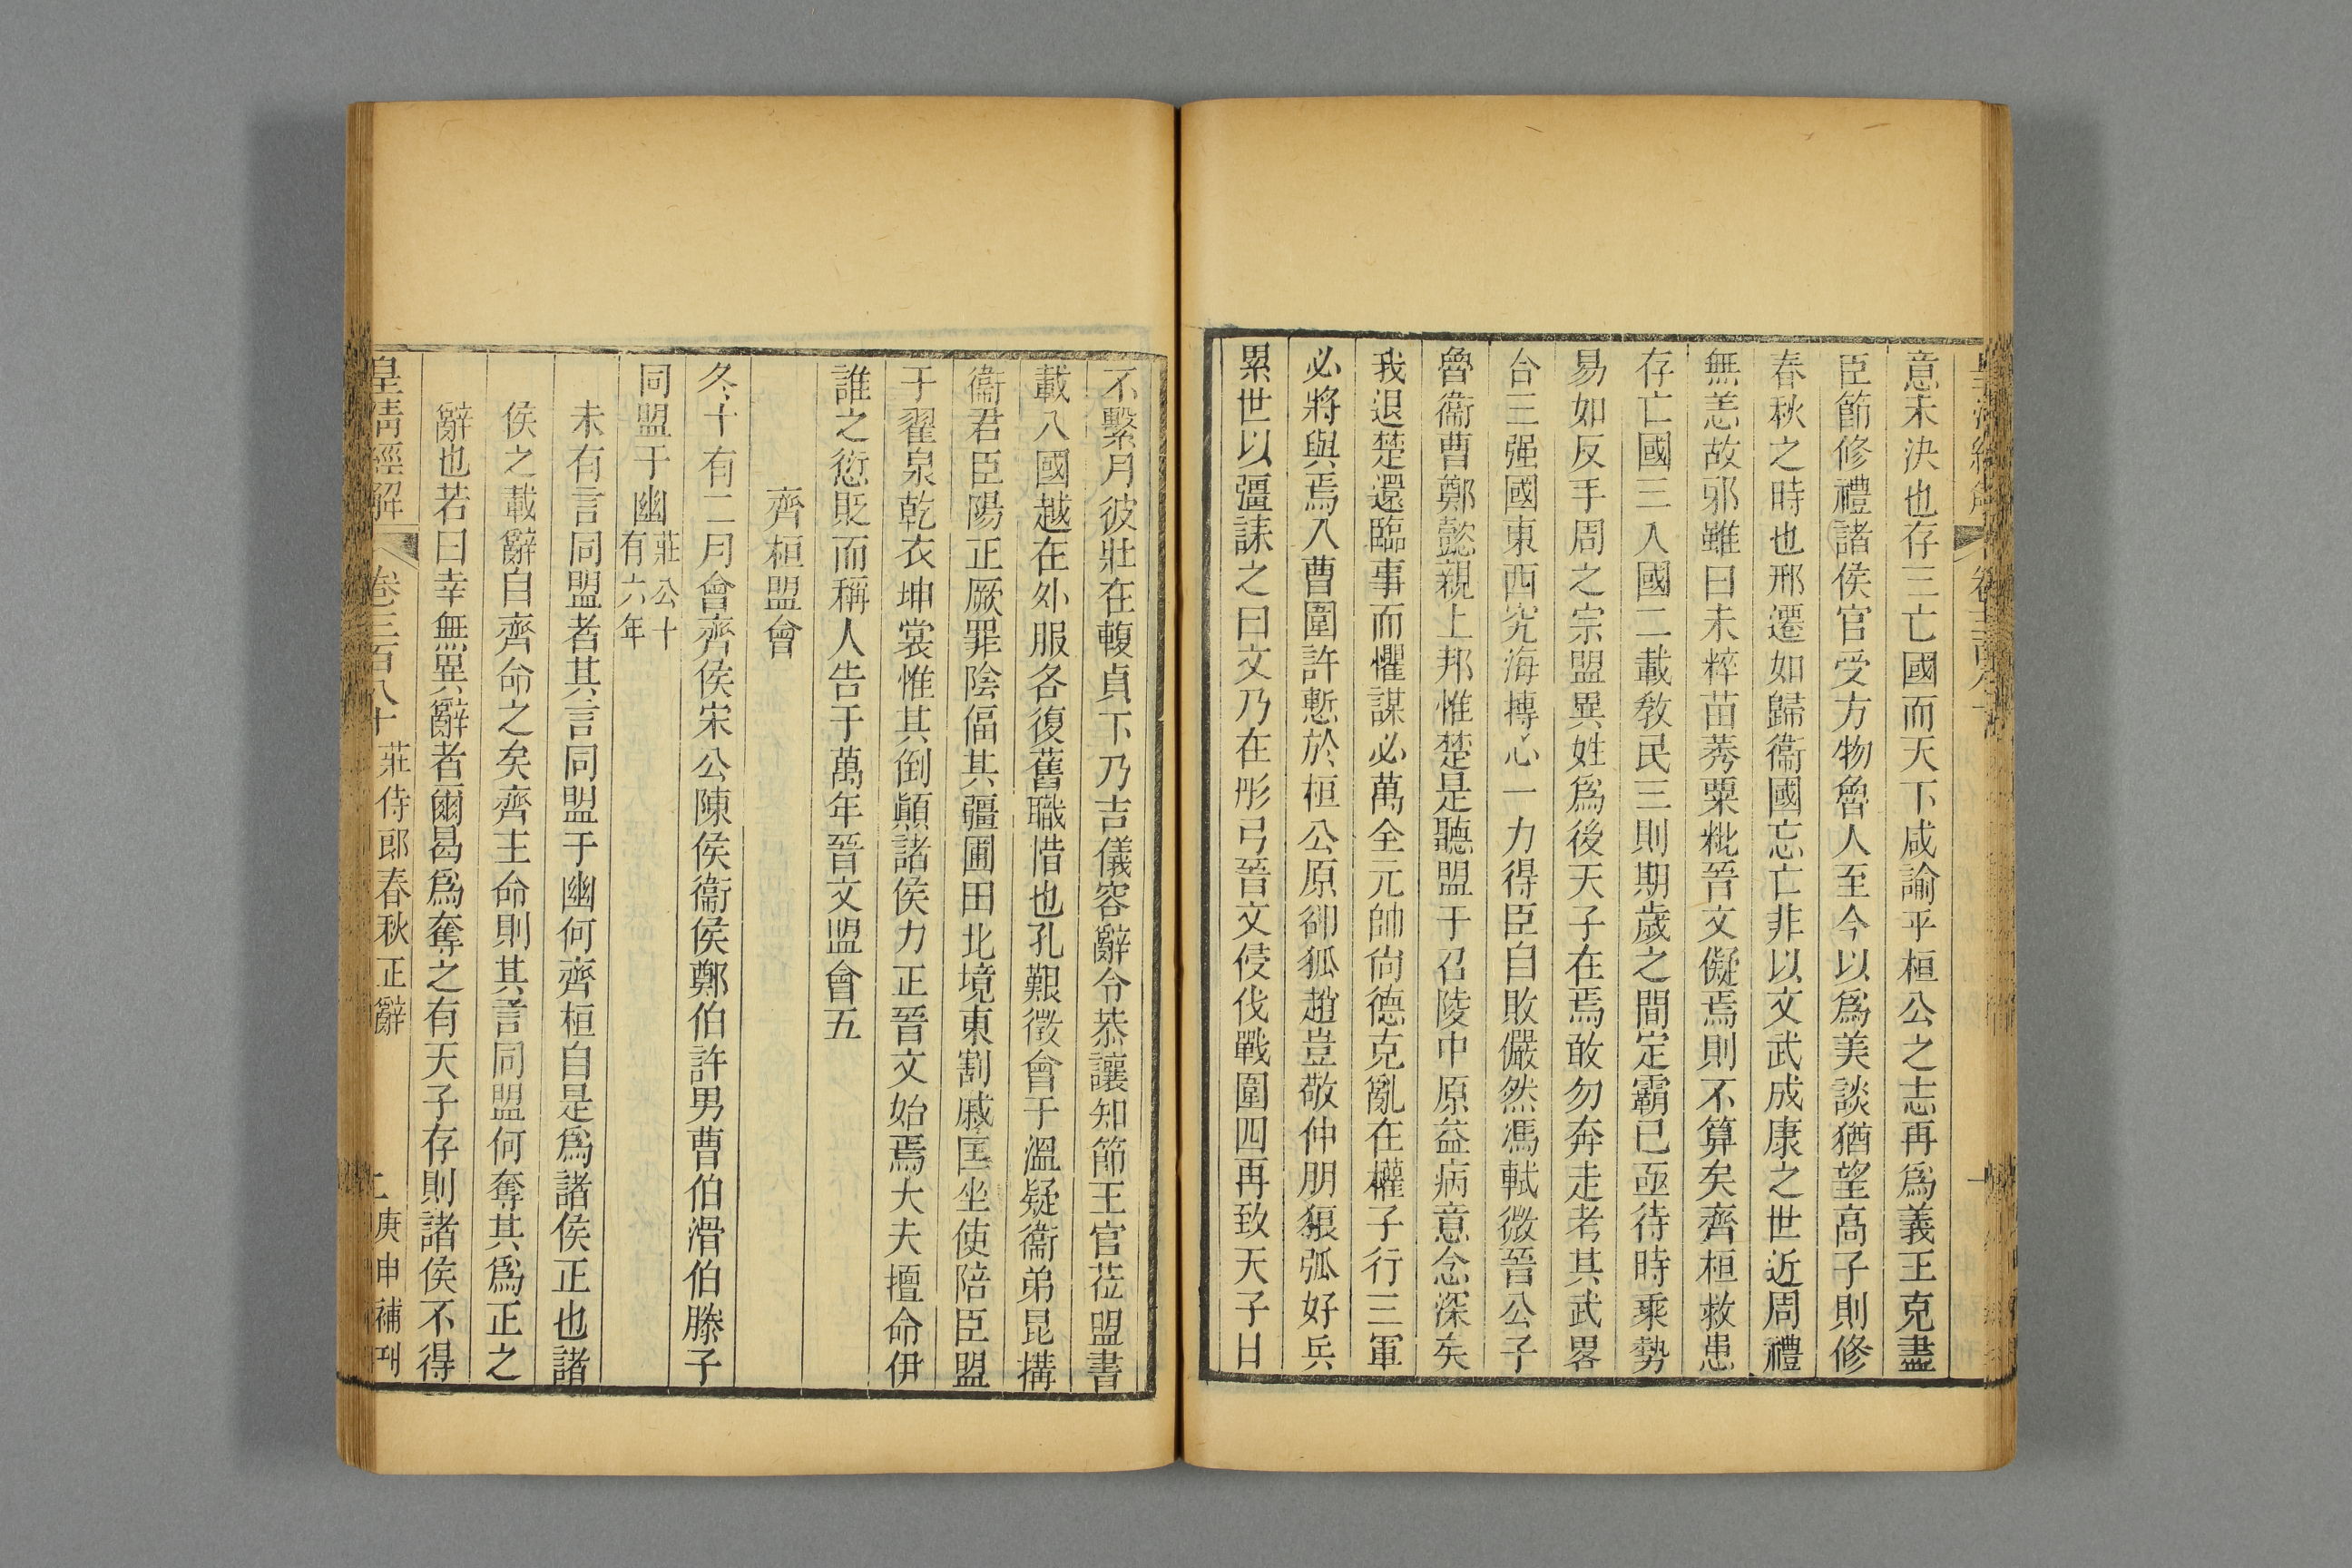 意未決也存三亡國而天下咸諭乎桓公之志再爲義王克盡
臣節修禮諸侯官受方物魯人至今以爲美談猶望高子則修
春秋之時也邢遷如歸衞國忘亡非以文武成康之世近周禮
無恙故邪雖曰未粹苗莠粟粃晉文儗焉則不算矣齊桓救患
存亡國三入國二載敎民三則期歲之間定霸已亟待時乘勢
易如反手周之宗盟異姓爲後天子在焉敢勿奔走考其武畧
合三强國東西究海摶心一力得臣自敗儼然馮軾微晉公子
魯衞曹鄭懿親上邦惟楚是聽盟于召陵中原益病意念深矣
我退楚還臨事而懼謀必萬全元帥尙德克亂在權子行三軍
必將與焉入曹圍許慙於桓公原卻狐趙豈敬仲朋狠弧好兵
累世以彊誄之曰文乃在彤弓晉文侵伐戰圍四再致天子日
不繫月彼壯在輹貞下乃吉儀容辭令恭讓知節王官莅盟書
載八國越在外服各復舊職惜也孔艱徵會于溫疑衞弟昆搆
衞君臣陽正厥罪陰偪其疆圃田北境東割戚匡坐使陪臣盟
于翟泉乾衣坤裳惟其倒顚諸侯力正晉文始焉大夫擅命伊
誰之愆貶而稱人告于萬年晉文盟會五
齊桓盟會
冬十有二月會齊侯宋公陳侯衞侯鄭伯許男曹伯滑伯滕子
同盟于幽莊公十有六年
未有言同盟者其言同盟于幽何齊桓自是爲諸侯正也諸
侯之載辭自齊命之矣齊主命則其言同盟何奪其爲正之
辭也若曰幸無異辭者爾曷爲奪之有天子存則諸侯不得
皇淸經解 卷三百八十 莊侍郎春秋正辭 二 庚申補刊